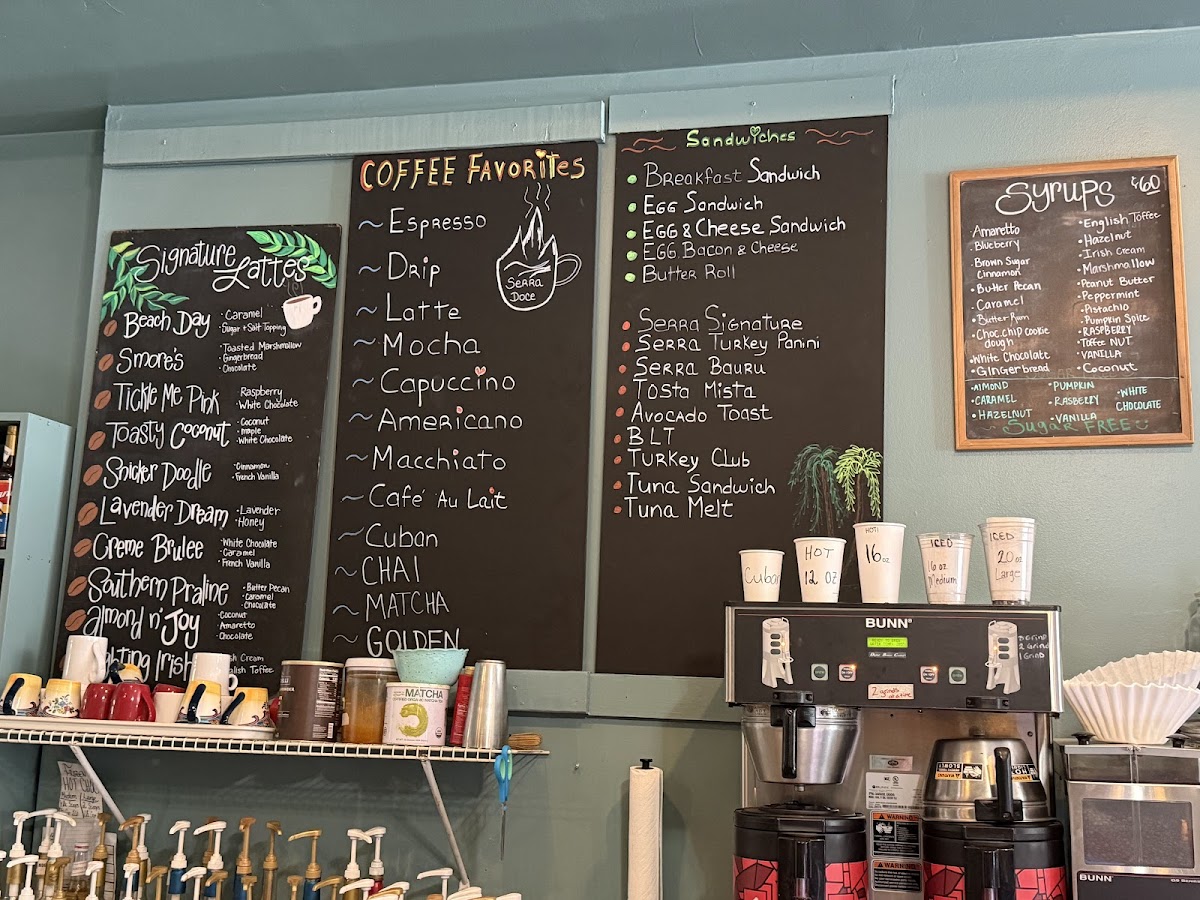 Signature
Lattes
Beach Day
· Caramel
· Sugar + Salt Topping
Smore's
· Toasted Marshmallow
· Gingerbread
· Chocolate
Tickle Me Pink
· Raspberry
· White Chocolate
Toasty Coconut
· Coconut
· maple
· White Chocolate
Snicker Doodle
· Cinnamon
· French Vanilla
Lavender Dream
· Lavender
· Honey
Creme Brulee
· White Chocolate
· Caramel
· French Vanilla
Southern Praline
· Butter Pecan
· Caramel
· Chocolate
almond n' Joy
· Coconut
· Amaretto
· Chocolate
COFFEE FAVORITES
~ ESPRESSO
~ DRIP
~ LATTE
~ MOCHA
~ CAPUCCINO
~ AMERICANO
~ MACCHIATO
~ CAFÉ AU LAIT
~ CUBAN
~ CHAI
~ MATCHA
~ GOLDEN
SERRA
DOCE
Sandwiches
• Breakfast Sandwich
• EGG Sandwich
• EGG & Cheese Sandwich
• EGG Bacon & Cheese
• Butter Roll
• SERRA SIGNATURE
• SERRA TURKEY PANINI
• SERRA BAURU
• TOSTA MISTA
• AVOCADO TOAST
• BLT
• TURKEY CLUB
• TUNA SANDWICH
• TUNA MELT
Syrups
Amaretto
· Blueberry
· Brown Sugar
Cinnamon
· Butter Pecan
· Caramel
· Butter Rum
· Choc.chip cookie
dough
· White Chocolate
· Gingerbread
· English Toffee
· Hazelnut
· Irish Cream
· Marshmallow
· Peanut Butter
· Peppermint
· Pistachio
· Pumpkin Spice
· RASPBERRY
· Toffee NUT
· VANILLA
· Coconut
· AlMOND
· CARAMEL
· HAZELNUT
· PUMPKIN
· RASBERRY
· VANILLA
· WHITE
CHOCOLATE
SUGAR FREE
Cuban
HOT
12 OZ
HOT!
16 oz
ICED
16 oz
Medium
ICED
20 oz
Large
BUNN
MATCHA
WARNING
WARNING
BUNN